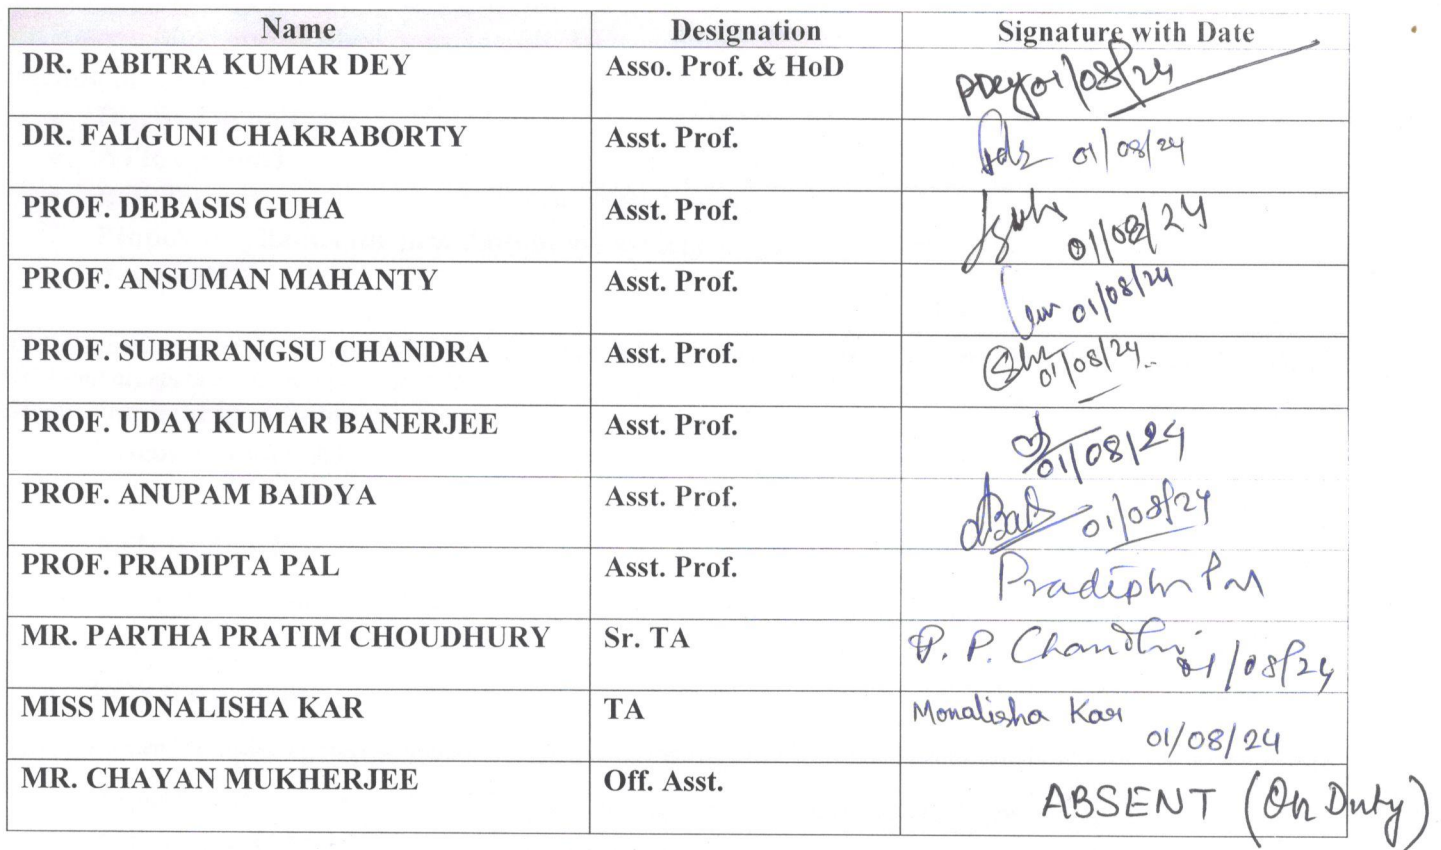 Name Designation Signature with Date
DR. PABITRA KUMAR DEY Asso. Prof. & HoD PDey 01/08/24
DR. FALGUNI CHAKRABORTY Asst. Prof. 01/08/24
PROF. DEBASIS GUHA Asst. Prof. 01/08/24
PROF. ANSUMAN MAHANTY Asst. Prof. 01/08/24
PROF. SUBHRANGSU CHANDRA Asst. Prof. 01/08/24
PROF. UDAY KUMAR BANERJEE Asst. Prof. 01/08/24
PROF. ANUPAM BAIDYA Asst. Prof. 01/08/24
PROF. PRADIPTA PAL Asst. Prof. Pradipta Pal
MR. PARTHA PRATIM CHOUDHURY Sr. TA P. P. 01/08/24
MISS MONALISHA KAR TA Monalisha Kar
01/08/24
MR. CHAYAN MUKHERJEE Off. Asst. ABSENT (On Duty)